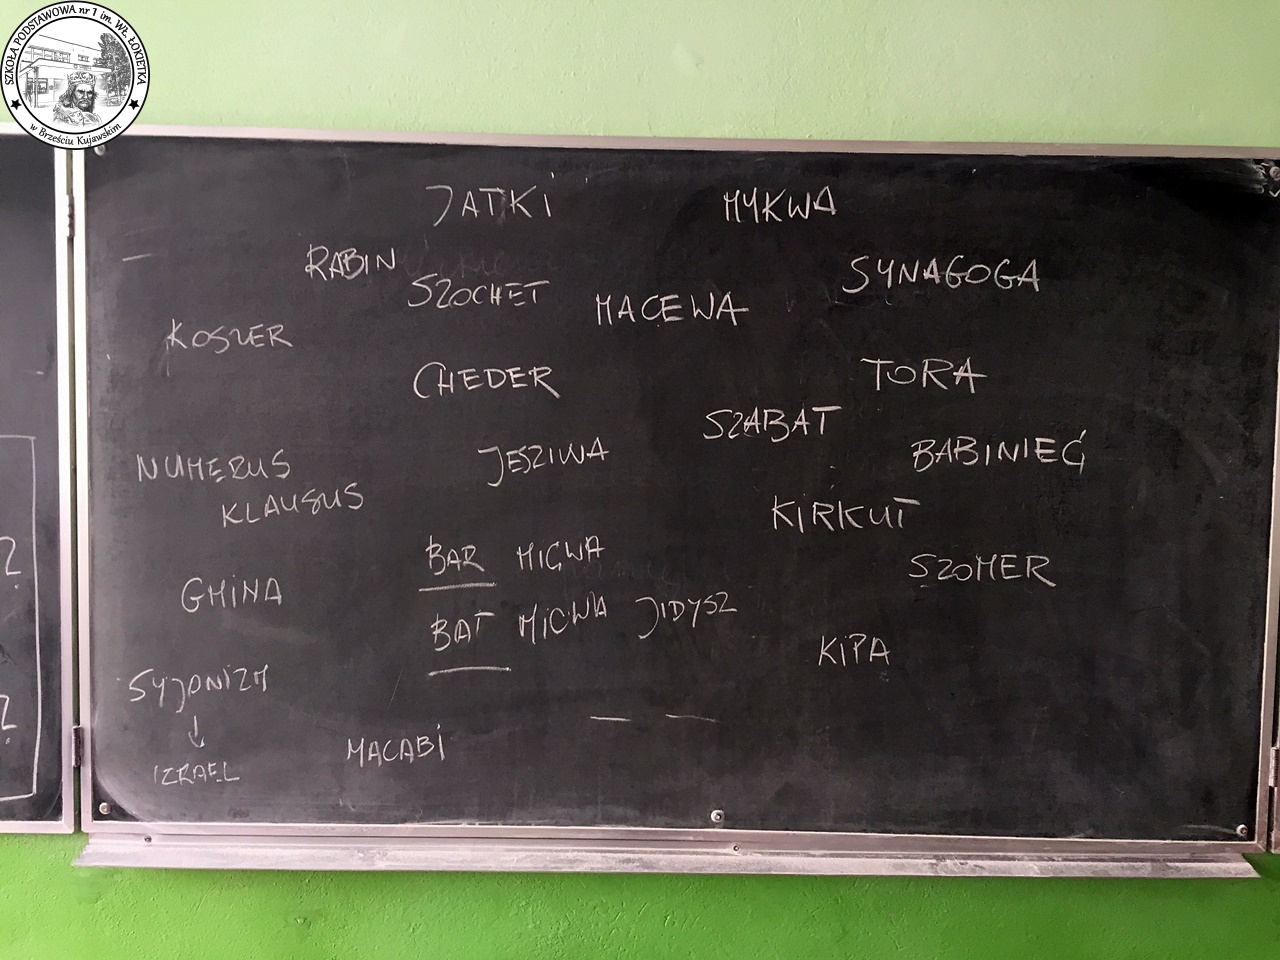 SZKOŁA PODSTAWOWA nr 1 im. WŁ. ŁOKIETKA
w Brześciu Kujawskim
JATKI
MYKWA
RABIN
SZOCHET
MACEWA
SYNAGOGA
KOSZER
CHEDER
TORA
SZABAT
NUMERUS
KLAUSUS
JESZIWA
BABINIEC
KIRKUT
BAR MICWA
GMINA
SZOMER
BAT MICWA JIDYSZ
KIPA
SYJONIZM
↓
IZRAEL
MACABI
?
?